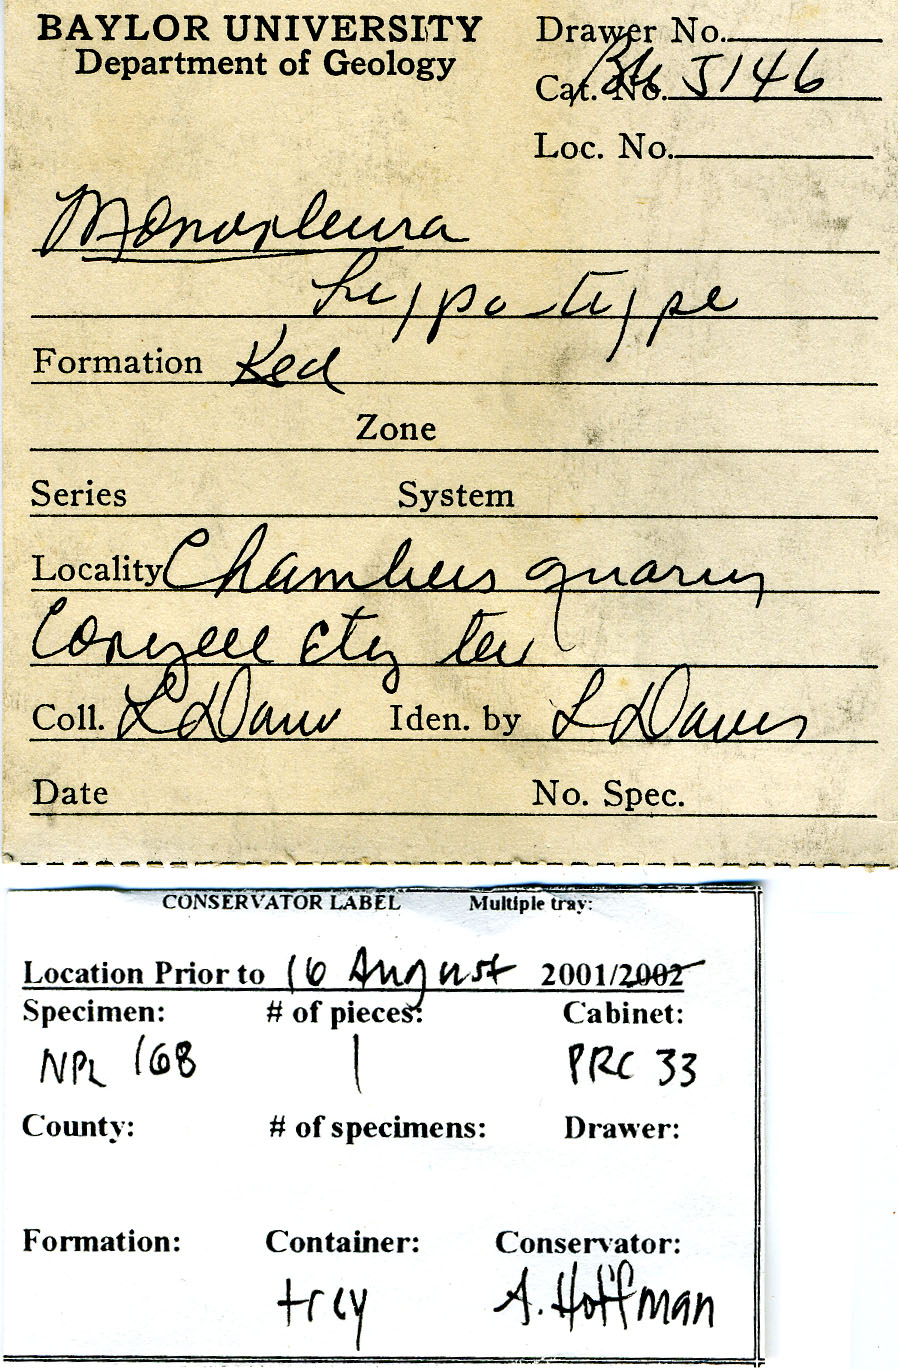 BAYLOR UNIVERSITY
Department of Geology
Drawer No.
Cat. No. J146
Loc. No.
Monopleura
hypotype
Formation Ked
Zone
Series System
Locality Chambers quarry
Coryell Cty Tex
Coll. L Davis Iden. by L Davis
Date No. Spec.
CONSERVATOR LABEL Multiple tray:
Location Prior to 16 August 2001/2002
Specimen: # of pieces: Cabinet:
NPL 168 1 PRC 33
County: # of specimens: Drawer:
Formation: Container: Conservator:
tray A. Hoffman